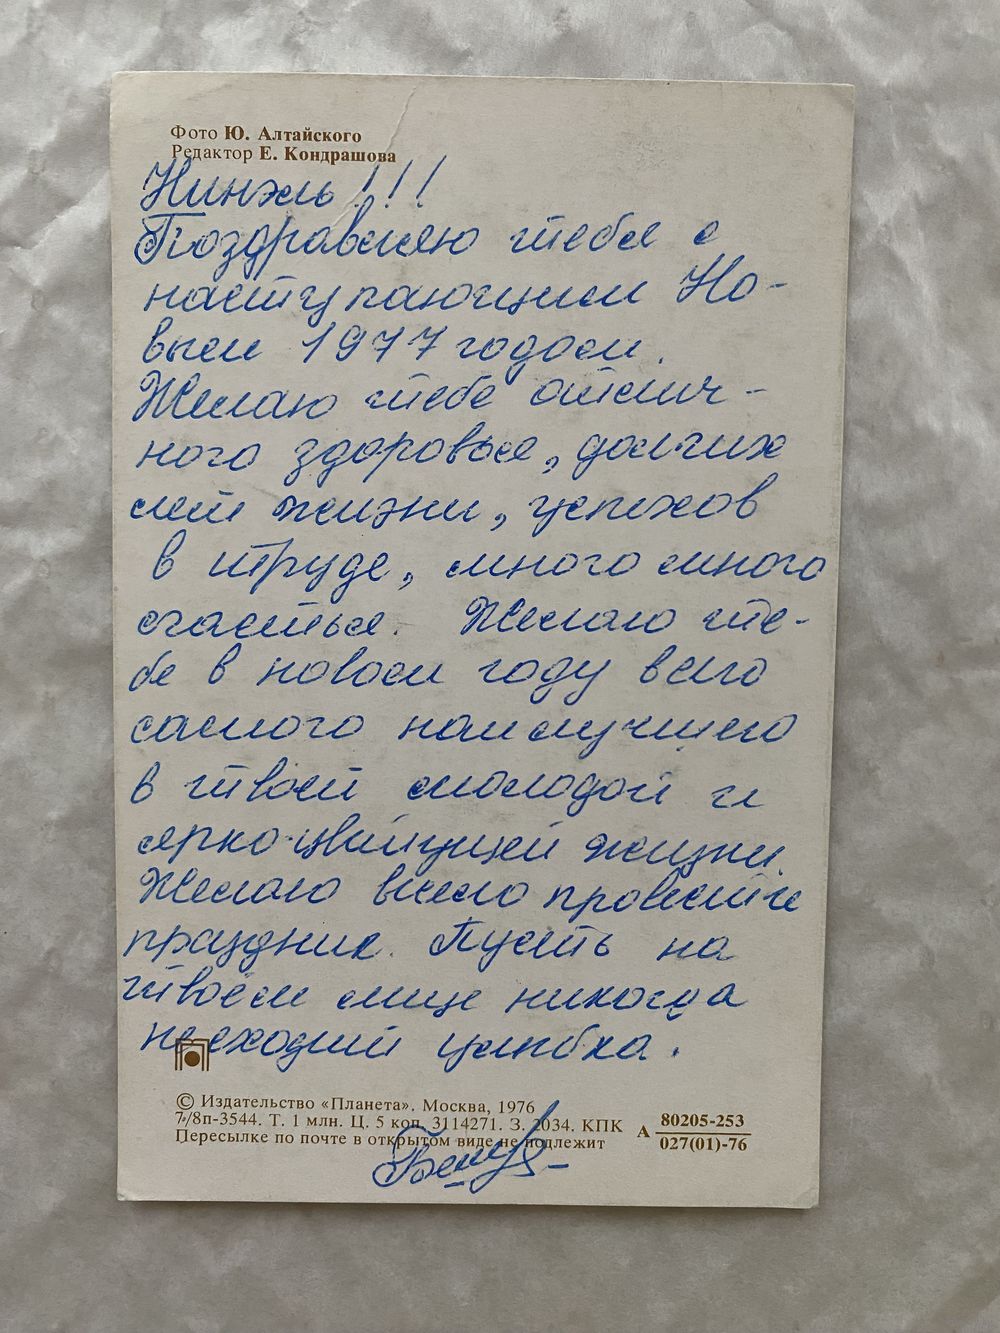 Фото Ю. Алтайского
Редактор Е. Кондрашова
Нинэль!!!
Поздравляю тебя с
наступающим Но-
вым 1977 годом.
Желаю тебе отлич-
ного здоровья, долгих
лет жизни, успехов
в труде, много много
счастья. Желаю те-
бе в новом году всего
самого наилучшего
в твоей молодой и
ярко цветущей жизни
Желаю весело провести
праздник. Пусть на
твоём лице никогда
не сходит улыбка.
© Издательство «Планета». Москва, 1976
7/8п-3544. Т. 1 млн. Ц. 5 коп. 3114271. З. 2034. КПК
Пересылке по почте в открытом виде не подлежит
А 80205-253
027(01)-76